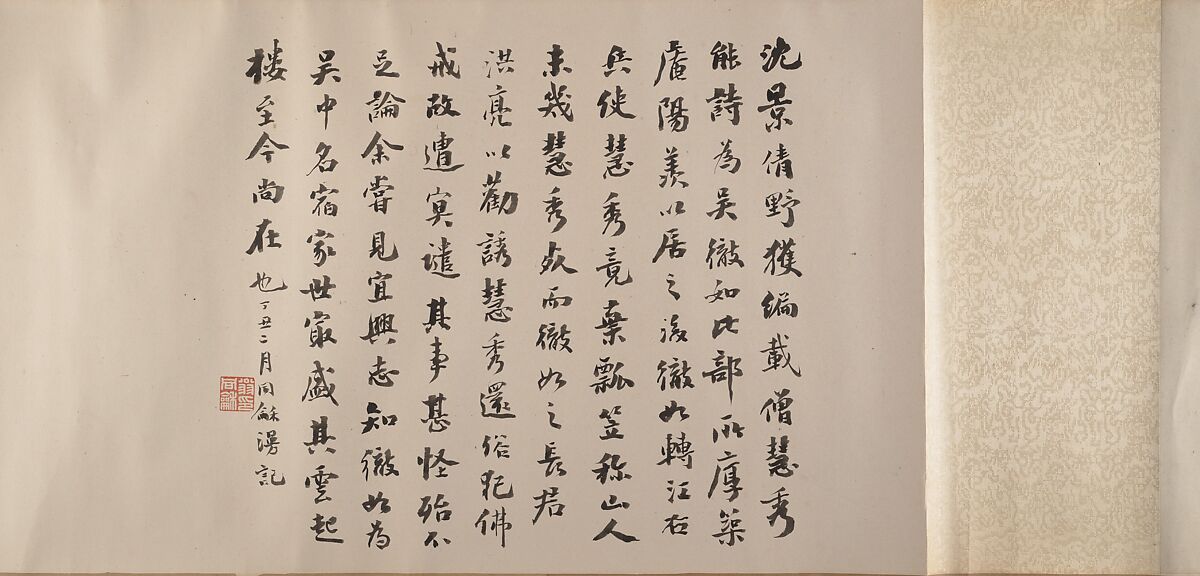 沈景倩野獲編載僧慧秀
能詩為吳徹如比部所厚築
庵陽羡以居之後徹如轉江右
兵使慧秀竟棄瓢笠稱山人
未幾慧秀歿而徹如之長君
洪亮以勸誘慧秀還俗犯佛
戒故遭冥譴其事甚怪殆不
足論余嘗見宜興志知徹如為
吳中名宿家世最盛其雲起
樓至今尚在也丁丑二月同龢漫記
翁同龢印